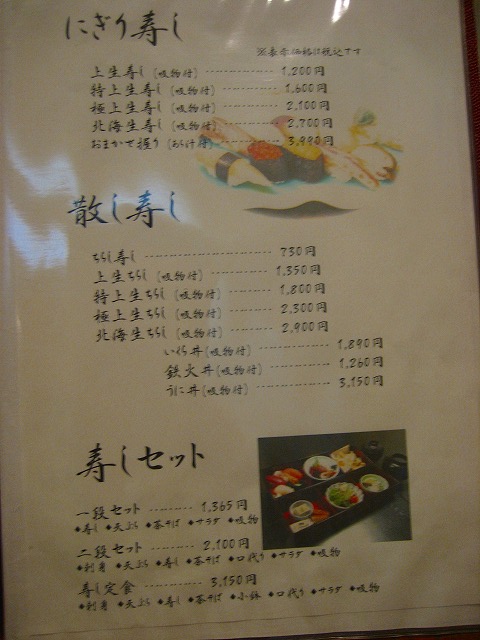 にぎり寿し
※表示価格は税込です
上生寿し (吸物付) 1,200円
特上生寿し (吸物付) 1,600円
極上生寿し (吸物付) 2,100円
北海生寿し (吸物付) 2,700円
おまかせ握り (あら汁付) 3,990円
散し寿し
ちらし寿し 730円
上生ちらし (吸物付) 1,350円
特上生ちらし (吸物付) 1,800円
極上生ちらし (吸物付) 2,300円
北海生ちらし (吸物付) 2,900円
いくら丼(吸物付) 1,890円
鉄火丼(吸物付) 1,260円
うに丼(吸物付) 3,150円
寿しセット
一段セット 1,365円
◆寿し ◆天ぷら ◆茶そば ◆サラダ ◆吸物
二段セット 2,100円
◆刺身 ◆天ぷら ◆寿し ◆茶そば ◆口代り ◆サラダ ◆吸物
寿し定食 3,150円
◆刺身 ◆天ぷら ◆寿し ◆茶そば ◆小鉢 ◆口代り ◆サラダ ◆吸物